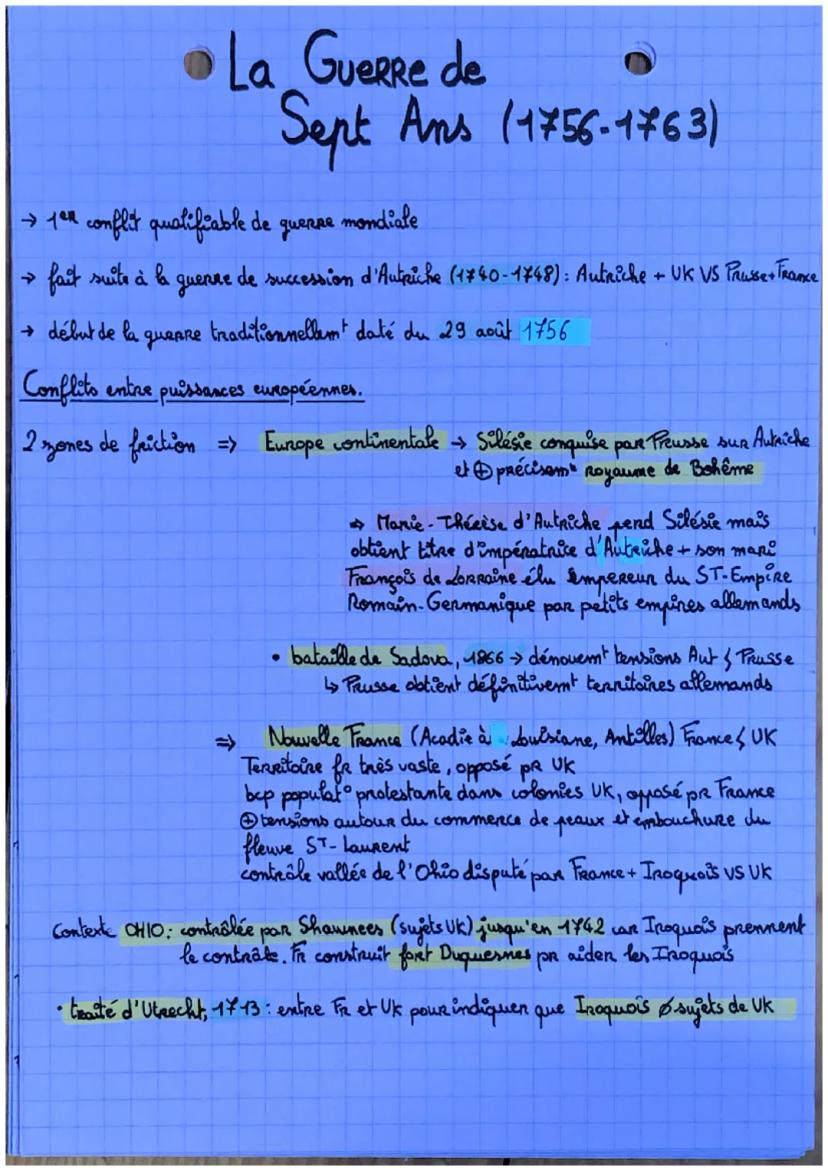 La Guerre de
Sept Ans (1756-1763)
→ 1er conflit qualifiable de guerre mondiale
→ fait suite à la guerre de succession d'Autriche (1740-1748) : Autriche + UK VS Prusse + France
→ début de la guerre traditionnellemt daté du 29 août 1756
Conflits entre puissances européennes.
2 zones de friction => Europe continentale → Silésie conquise par Preusse sur Autriche
et ⊕ précisemt royaume de Bohême
⇒ Marie-Thérèse d'Autriche perd Silésie mais
obtient titre d'impératrice d'Autriche + son mari
François de Lorraine élu Empereur du ST-Empire
Romain-Germanique par petits empires allemands
• bataille de Sadova, 1866 → dénouemt tensions Aut { Prusse
↳ Prusse obtient définitivemt territoires allemands
⇒ Nouvelle France (Acadie à Louisiane, Antilles) France { UK
Territoire fr très vaste, opposé pr UK
bcp populat° protestante dans colonies UK, opposé pr France
⊕ tensions autour du commerce de peaux et embouchure du
fleuve ST-Laurent
contrôle vallée de l'Ohio disputé par France + Iroquois VS UK
Contexte OHIO : contrôlée par Shawnees (sujets UK) jusqu'en 1742 car Iroquois prennent
le contrôle. Fr construit fort Duquesnes pr aider les Iroquois
• traité d'Utrecht, 1713 : entre Fr et UK pour indiquer que Iroquois ∅ sujets de UK